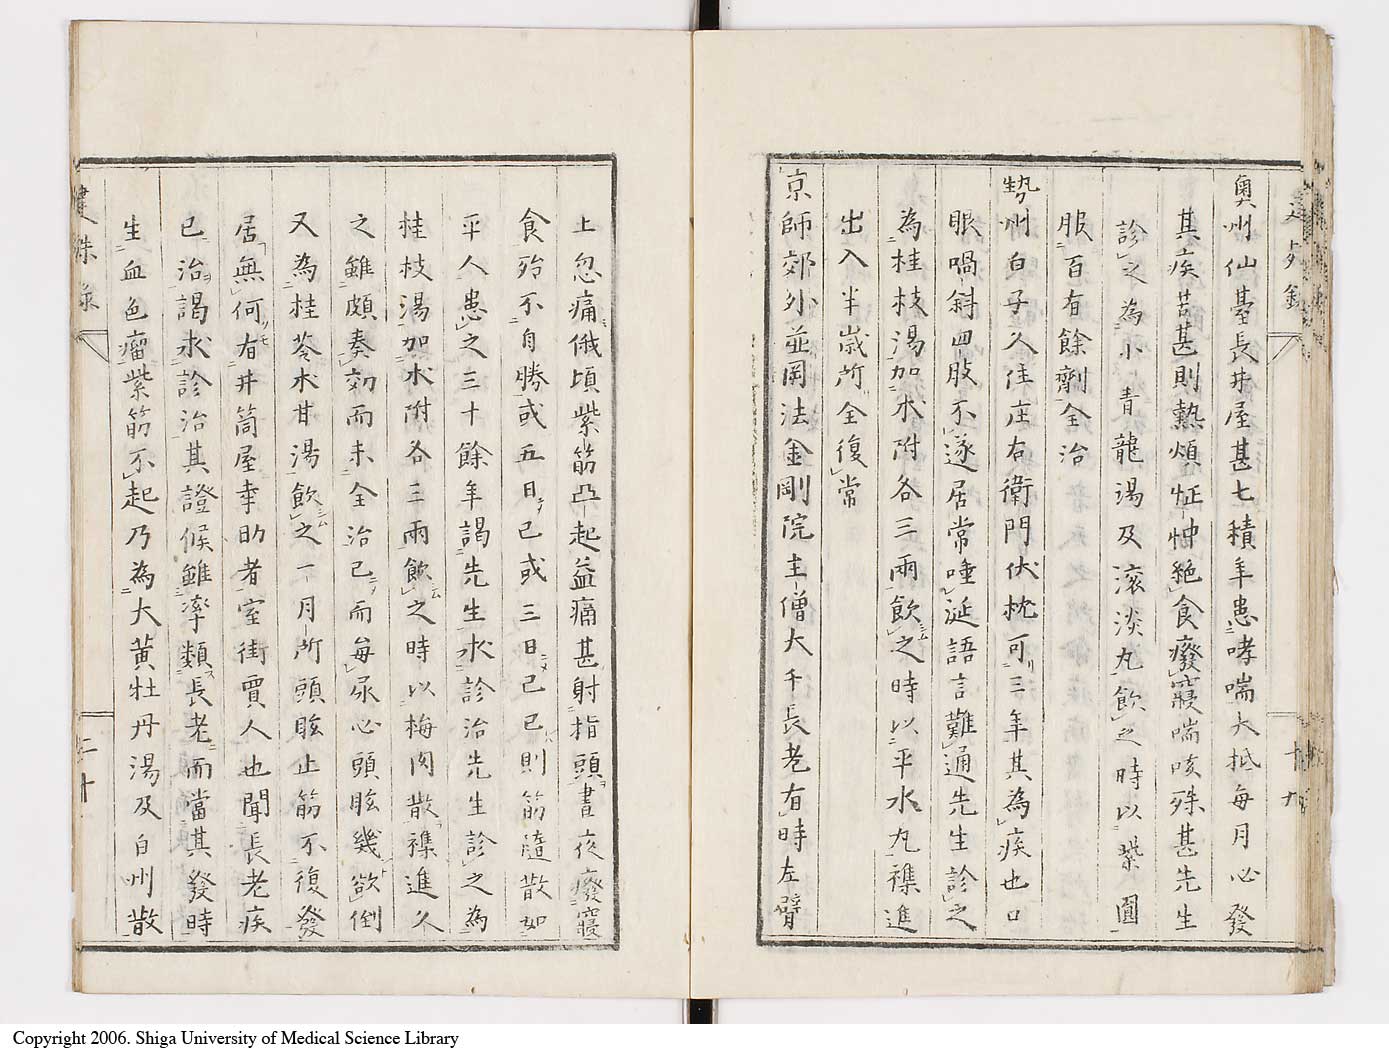 奧州仙臺長井屋甚七積年患哮喘大抵每月必發
其疾苦甚則熱煩怔忡絕食廢寢喘咳殊甚先生
診之為小青龍湯及滾淡丸飲之時以紫圓
服百有餘劑全治
勢州白子久住庄右衛門伏枕可三年其為疾也口
眼喎斜四肢不遂居常唾涎語言難通先生診之
為桂枝湯加朮附各三兩飲之時以平水丸襍進
出入半歲所全復常
京師郊外並岡法金剛院主僧大千長老有時左臂
上忽痛俄頃紫筋凸起益痛甚射指頭晝夜廢寢
食殆不自勝或五日已或三日已已則筋隨散如
平人患之三十餘年謁先生求診治先生診之為
桂枝湯加朮附各三兩飲之時以梅肉散襍進久
之雖頗奏効而未全治已而每尿心頭眩幾欲倒
又為桂苓朮甘湯飲之一月所頭眩止筋不復發
居無何有井筒屋幸助者室街賈人也聞長老疾
已治謁求診治其證候雖率類長老而當其發時
生血色瘤紫筋不起乃為大黃牡丹湯及白州散
建殊錄
二十
Copyright 2006. Shiga University of Medical Science Library